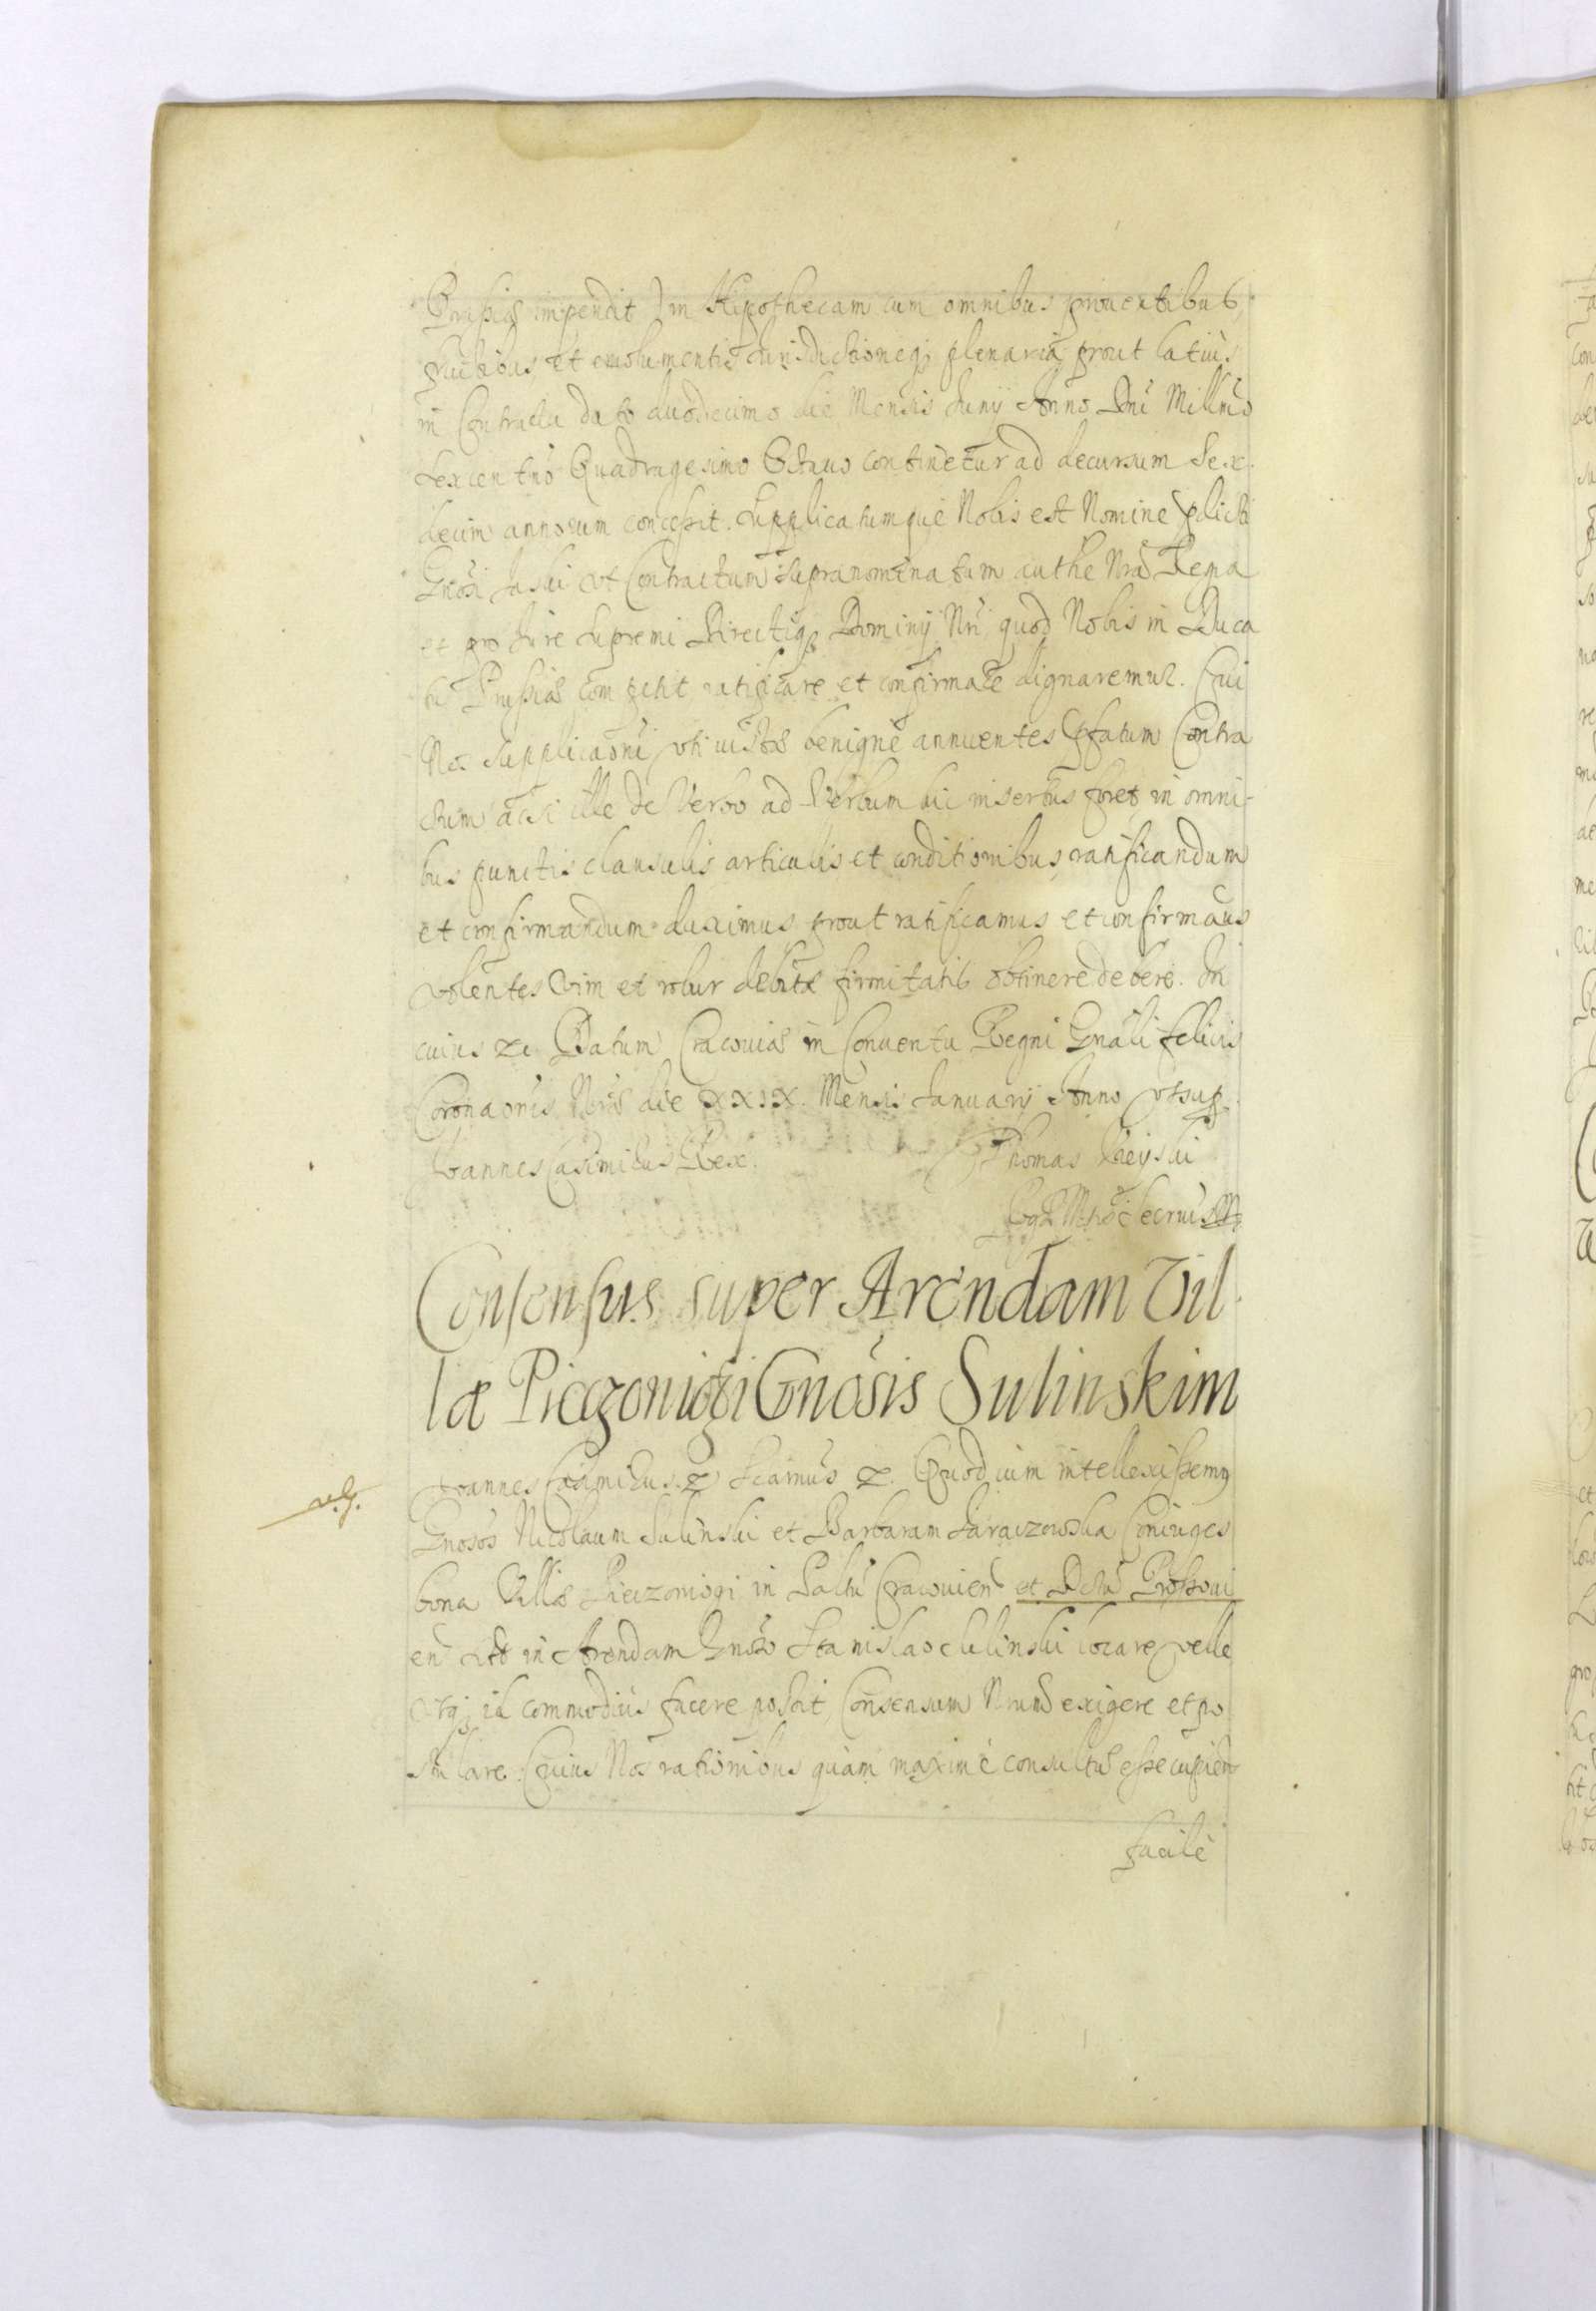 Prussiae impendit) in Hipothecam cum omnibus prouentibus,
fructibus, et emolumentis Jurisdictioneq; plenaria, prout latius
in Contractu dato duodecimo die Mensis Junij Anno Dni Millmo
Sexcentmo Quadragesimo Octauo continetur ad decursum Sex
decim annorum concessit. Supplicatumque Nobis est Nomine pdicti
Gnosi Jaski vt Contractum supranominatum authe Nra Regia
et pro Jure Supremi Directiq; Dominij Nri, quod Nobis in Duca
tu Prussiae competit, ratificare et confirmare dignaremur. Cui
Nos supplicaoni, vti iustae benigne annuentes pfatum Contra
ctum ac si ille de Verbo ad Verbum hic insertus foret, in omni-
bus punctis clausulis articulis et conditionibus, ratificandum
et confirmandum duximus prout ratificamus et confirmaus
volentes vim et robur debitae firmitatis obtinere debere. In
cuius rei Datum Cracouiae in Conuentu Regni Gnali felicis
Coronaonis Nrae die XXIX. Mensis Januarij Anno vt sup.
Joannes Casimirus Rex. Thomas Vieyski
Consensus super Arendam Vil-
lae Pieczoniogi Gnosis Sulinskim
Joannes Casimirus. & Scamus &. Quod cum intellexissemq
Gnosos Nicolaum Sulinski et Barbaram Jaraczowska Coniuges
bona Villae Pieczoniogi in Paltu Cracouien et Dctu Prossoui
en Sit in Arendam Gnoso Stanislao Sulinski locare velle
Vtq; id commodius facere possit, Consensum Nrum exigere et po
stulare. Cuius Nos rationibus quam maxime consultu esse cupien
facile